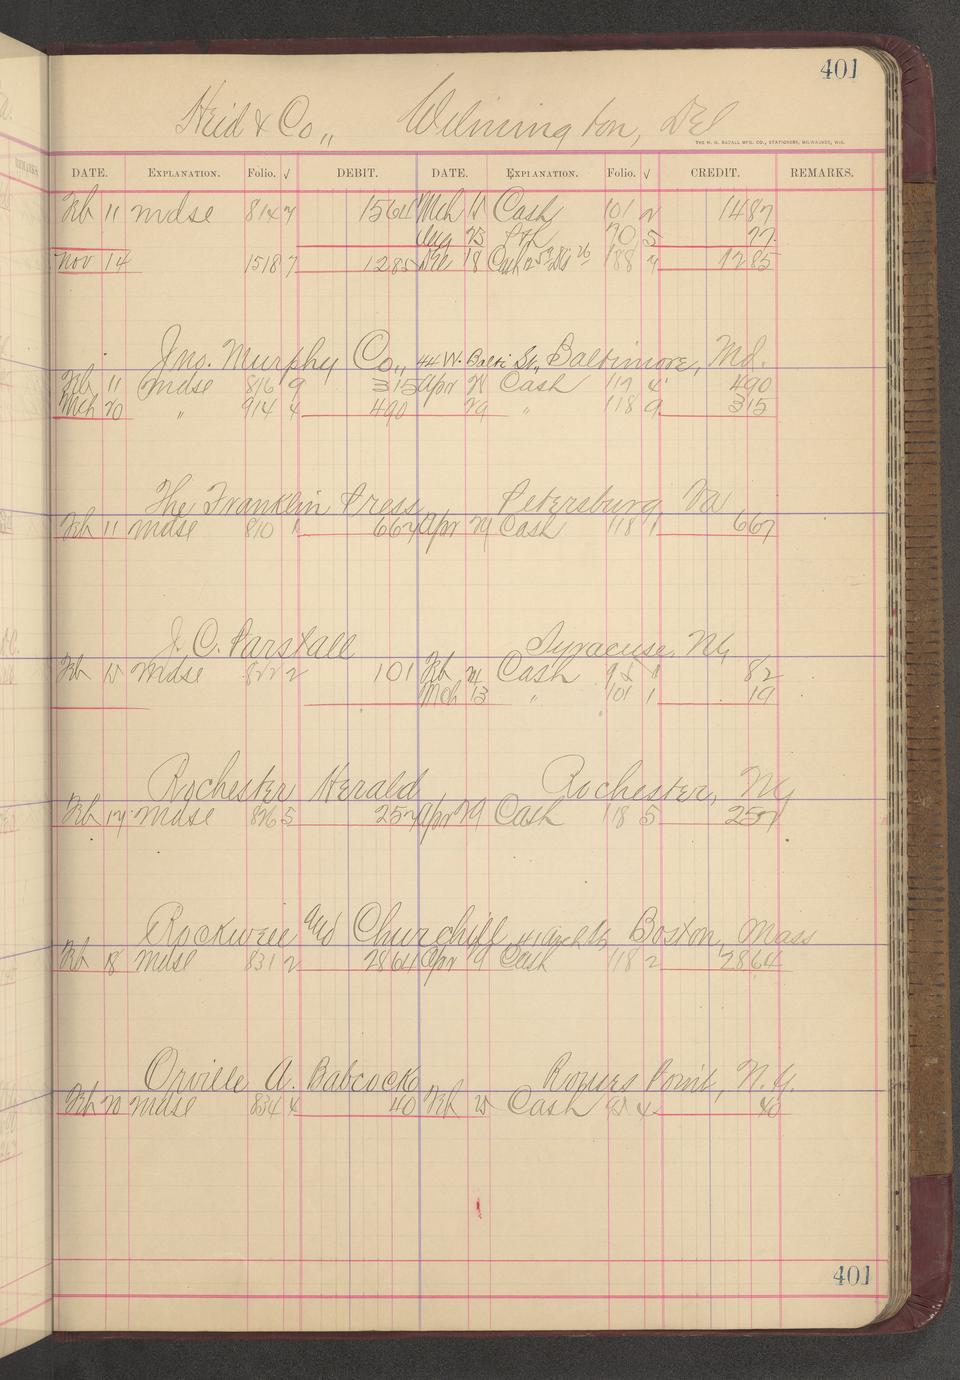 401
Heid & Co., Wilmington, Del
THE H. G. RAZALL MFG. CO., STATIONERS, MILWAUKEE, WIS.
DATE. EXPLANATION. Folio. √ DEBIT. DATE. EXPLANATION. Folio. √ CREDIT. REMARKS.
Feb 11 mdse 814 7 1564 Mch 12 Cash 101 2 1487
Aug 23 P&L 70 5 77
Nov 14 1518 7 1285 Dec 18 Cash 188 7 1285
Jno. Murphy Co., 44 W. Balti St., Baltimore, Md.
Feb 11 mdse 816 9 315 Apr 21 Cash 117 4 490
Mch 20 " 914 4 490 29 " 118 9 315
The Franklin Press Petersburg Va
Feb 11 mdse 810 1 667 Apr 29 Cash 118 1 667
J. C. Parshall Syracuse, NY
Feb 12 mdse 822 2 101 Feb 24 Cash 98 1 82
Mch 13 " 101 1 19
Rochester Herald Rochester, NY
Feb 17 mdse 826 5 257 Apr 29 Cash 118 5 257
Rockwell and Churchill 41 Arch St Boston, Mass
Feb 18 mdse 831 2 2864 Apr 29 Cash 118 2 2864
Orville A. Babcock Rouses Point, N.Y.
Feb 20 mdse 834 4 40 Feb 25 Cash 98 4 40
401